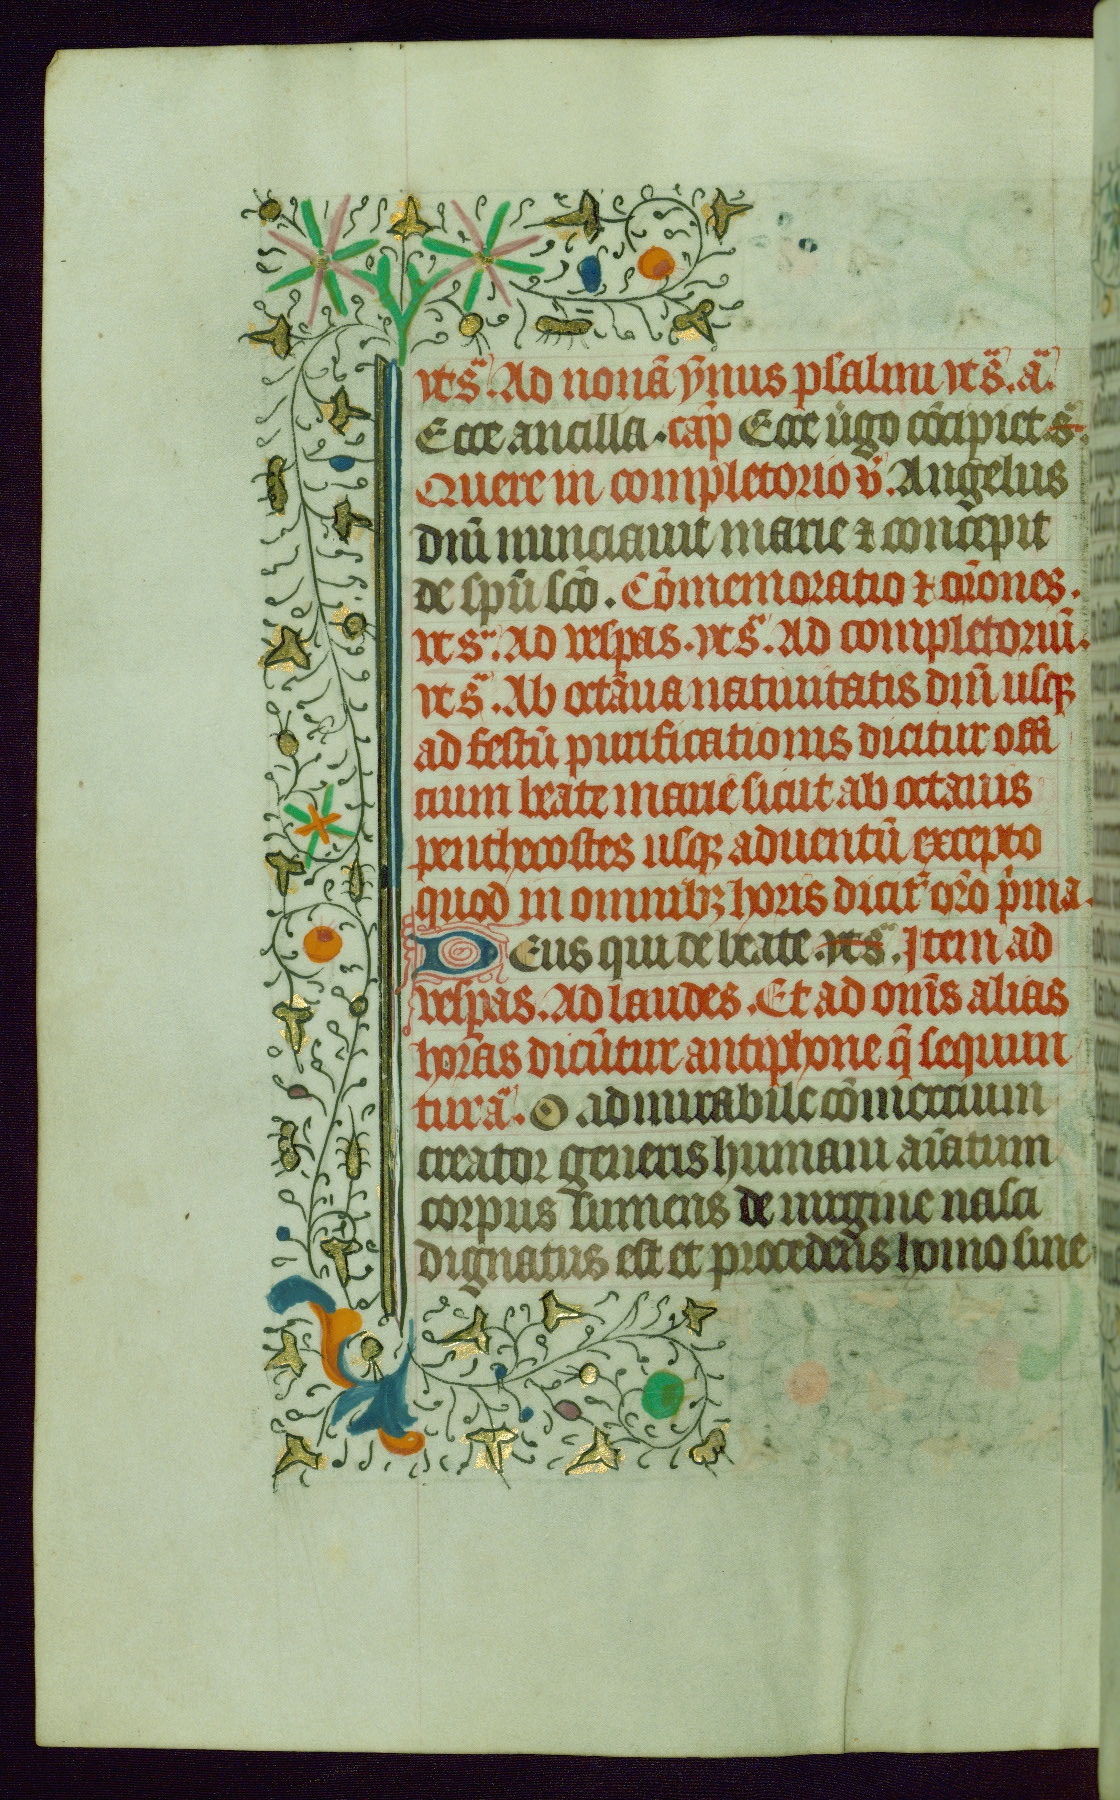 vt sͣ. Ad nonā ẏnus psalmi vt sͣ. aͣ.
Ecce ancilla. cap̄ Ecce ūgo cōcipiet
Quere in completorio v̄. Angelus
dn̄i nunciauit marie ⁊ concepit
de spū sc̄o. Cōmemoratio ⁊ or̄ones.
vt sͣ. Ad vesp̄as. vt sͣ. Ad completoriū.
vt sͣ. Ab octāua natiuitatis dn̄i usqꝫ
ad festū purificationis dicitur offi
cium beate marie sicut ab octauis
penthecostes usqꝫ aduentū excepto
quod in omnibꝫ horis dicit᷑ or̄o p̄ma.
Deus qui de beate vt sͣ. Item ad
vesp̄as. Ad laudes. Et ad omēs alias
horas dicūtur antiphone q̄ sequun
tur aͣ. O admirabile cōmercium
creator generis humani aīatum
corpus sumens de uirgine nasci
dignatus est et procedens homo sine